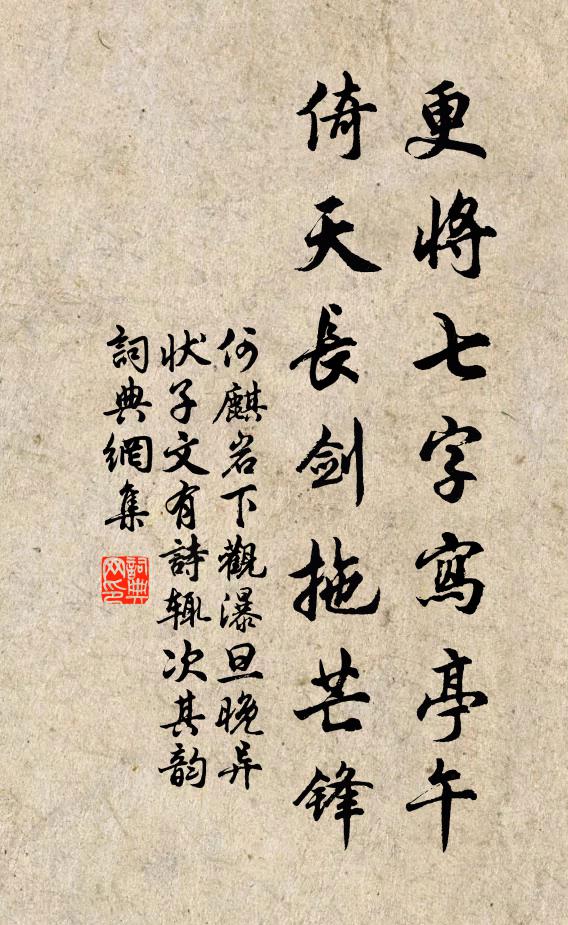 更將七字寫亭午
倚天長劍拖芒鋒
何麒岩下觀瀑旦晚异
狀子文有詩辄次其韵
詞典網集
詞典网印